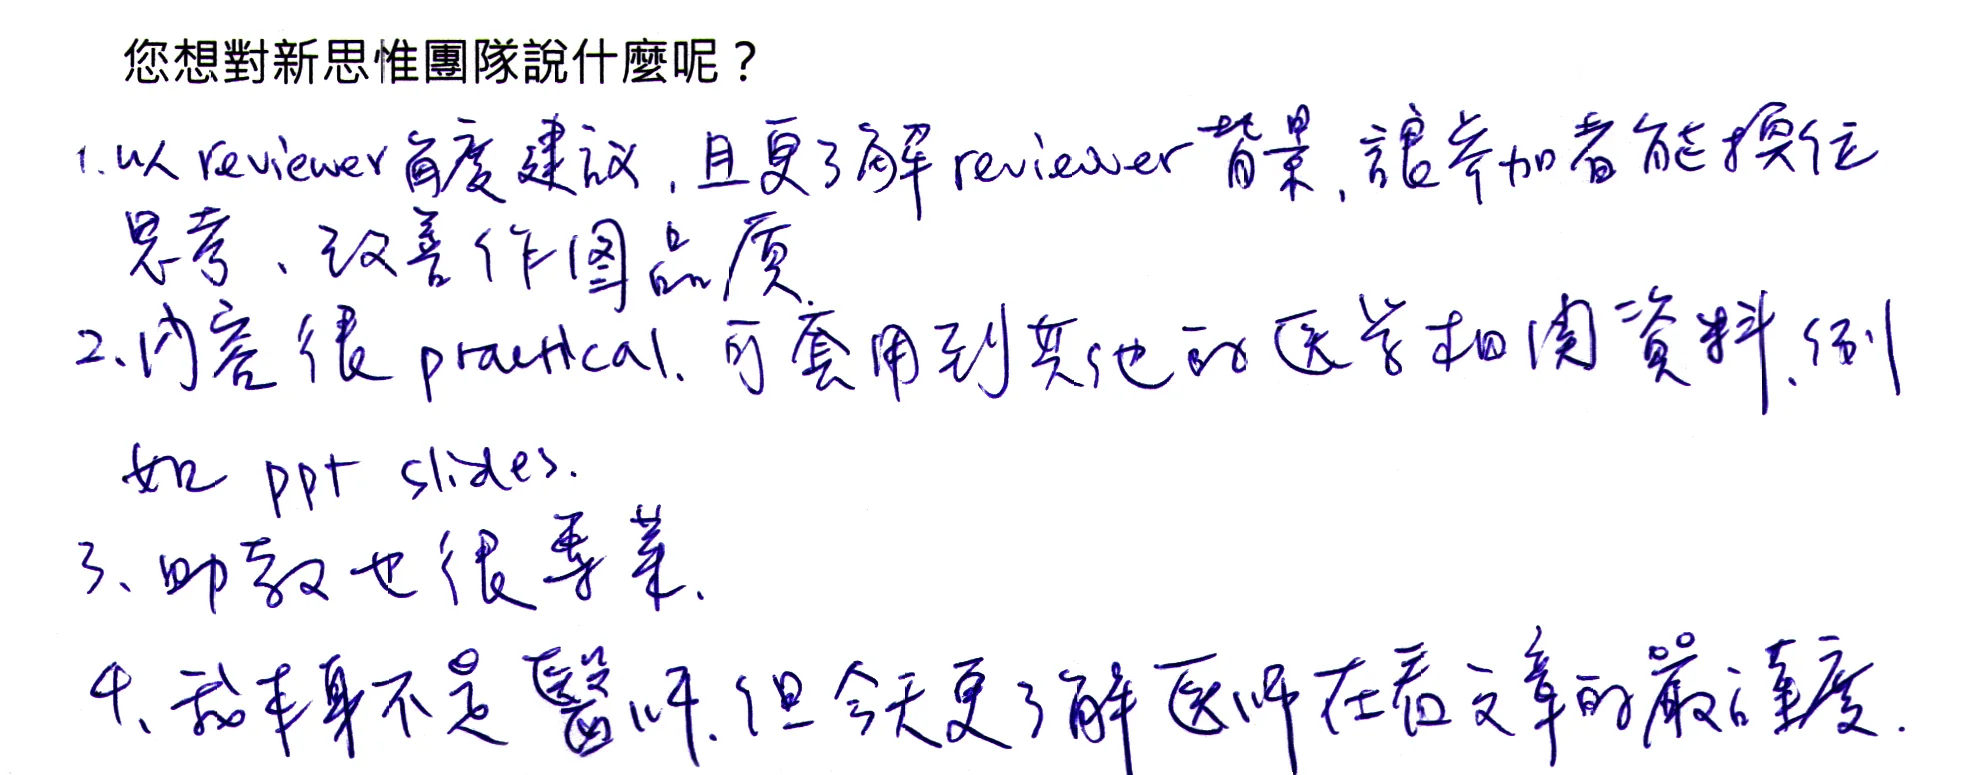 您想對新思惟團隊說什麼呢？
1. 以 reviewer 角度建議, 且更了解 reviewer 背景, 讓參加者能換位
思考、改善作图品质.
2、內容很 practical. 可套用到其他的医学相関資料, 例
如 ppt slides.
3、助教也很專業.
4、我本身不是醫师, 但今天更了解医师在看文章的嚴謹度.